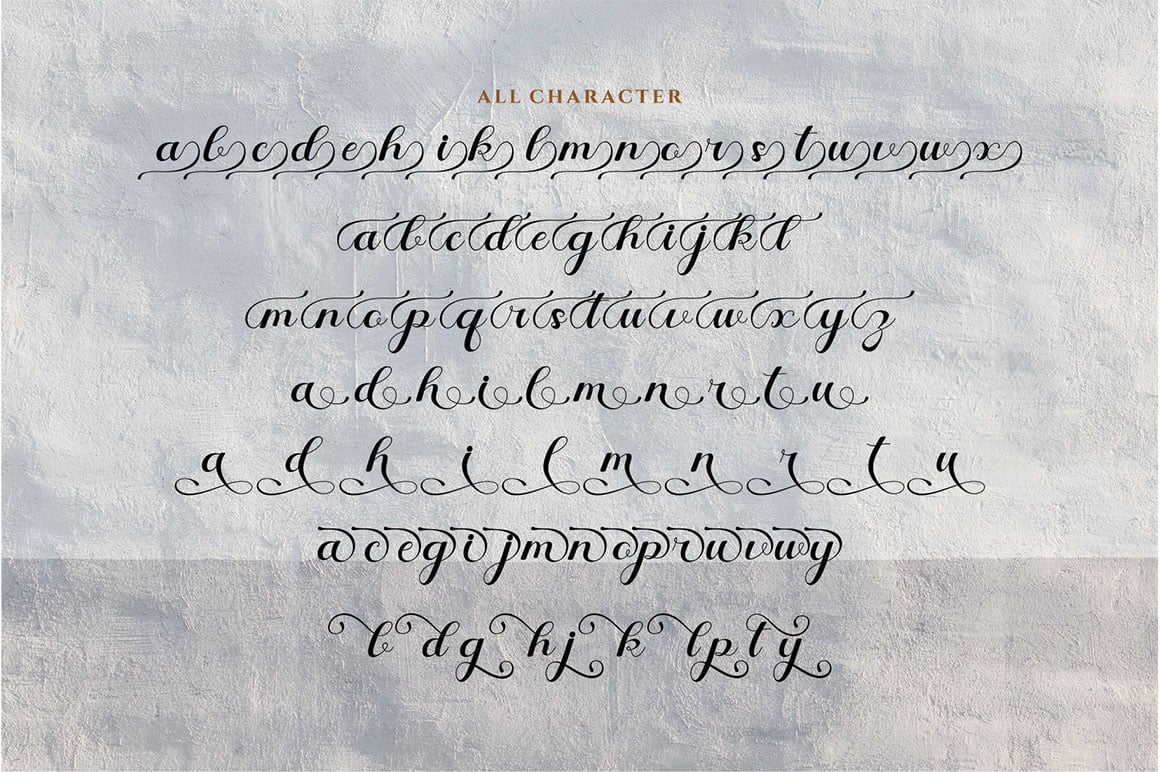 ALL CHARACTER
a b c d e h i k l m n o r s t u v w x
a b c d e g h i j k l
m n o p q r s t u v w x y z
a d h i l m n r t u
a d h i l m n r t u
a c e g i j m n o p r u v w y
b d g h j k l p t y